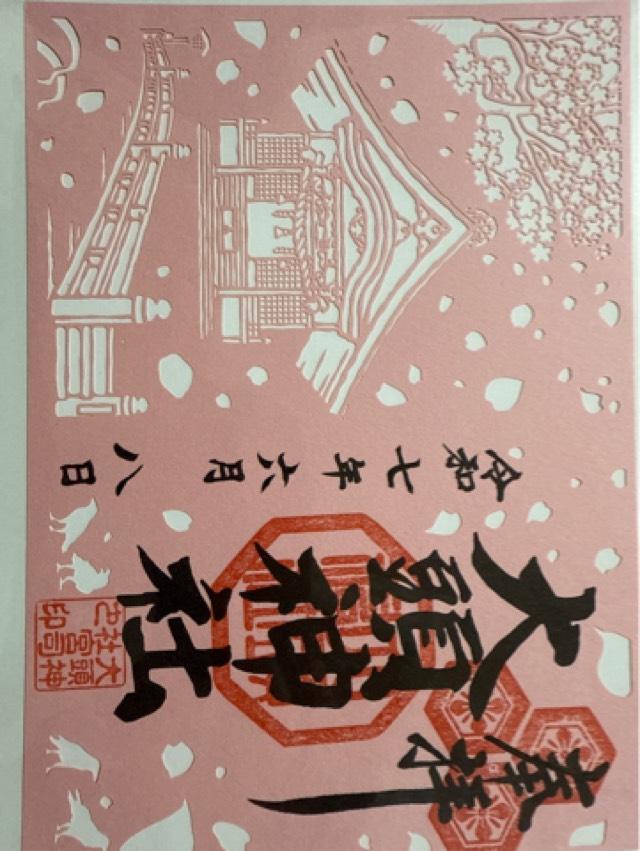 奉拝
大頭神社
令和七年六月八日
大頭神
社宮司
之印